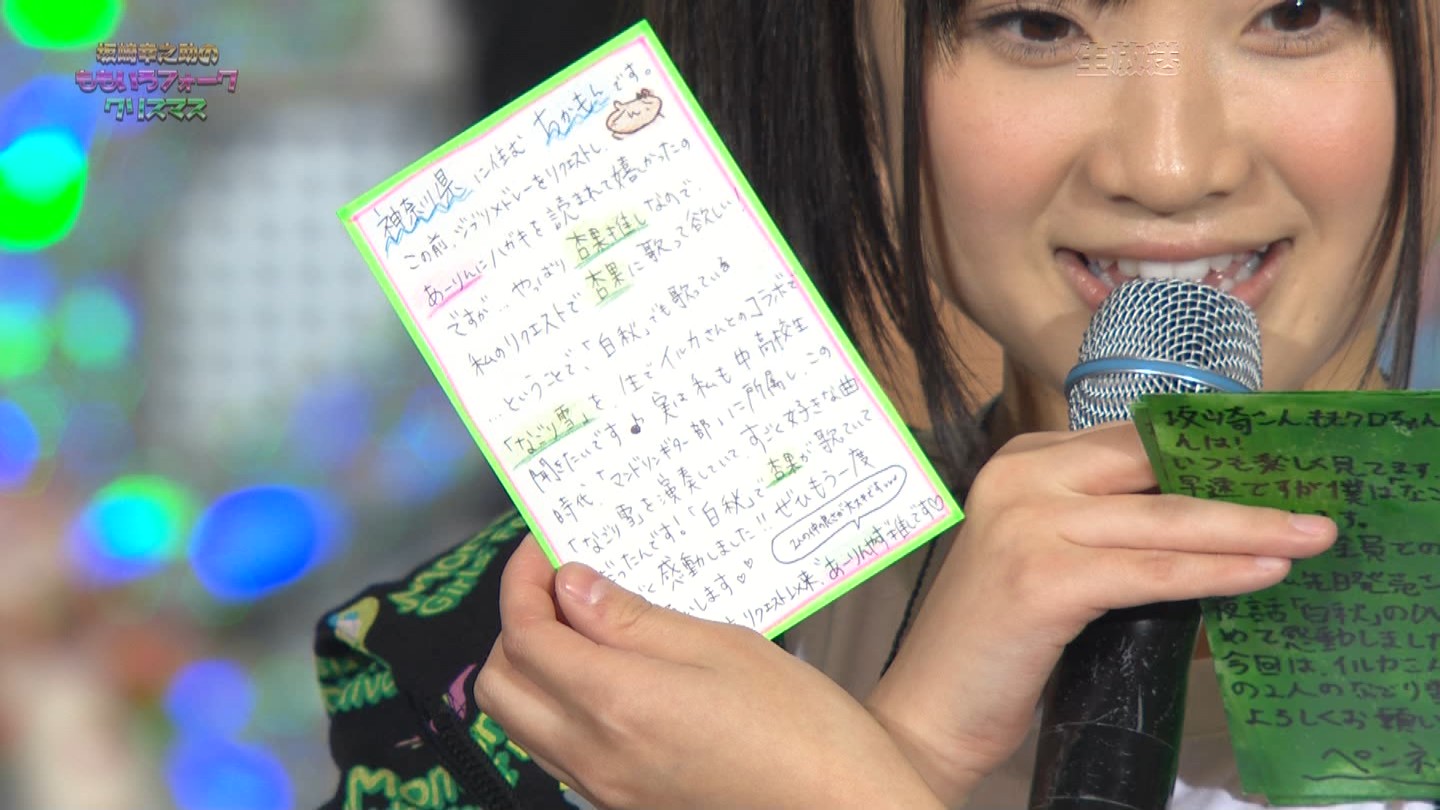 坂崎幸之助の
ももいろフォーク
クリスマス
生放送
神奈川県に住む ちかもんです。
この前、ジブリメドレーをリクエストし、
あーりんにハガキを読まれて嬉しかったの
ですが… やっぱり 杏果推しなので、
私のリクエストで 杏果に歌って欲しい
…ということで、「白秋」でも歌っている
「なごり雪」を、生でイルカさんとのコラボで
聞きたいです♪ 実は私も中高校生
時代、「マンドリンギター部」に所属し、この
「なごり雪」を演奏していて、すごく好きな曲
だったんです!「白秋」で杏果が歌ていて
く感動しました!! ぜひもう一度
します♡♡
リクエスト以来、あーりんやず推しです♡
坂崎さん、ももクロちゃん
んは!
いつも楽しく見てます。
早速ですが僕は「なご
ます。
全員での
先日発売さ
夜話「白秋」のひ
めて感動しました
今回は、イルカさん
の2人のなごり雪
よろしくお願い
ペンネ